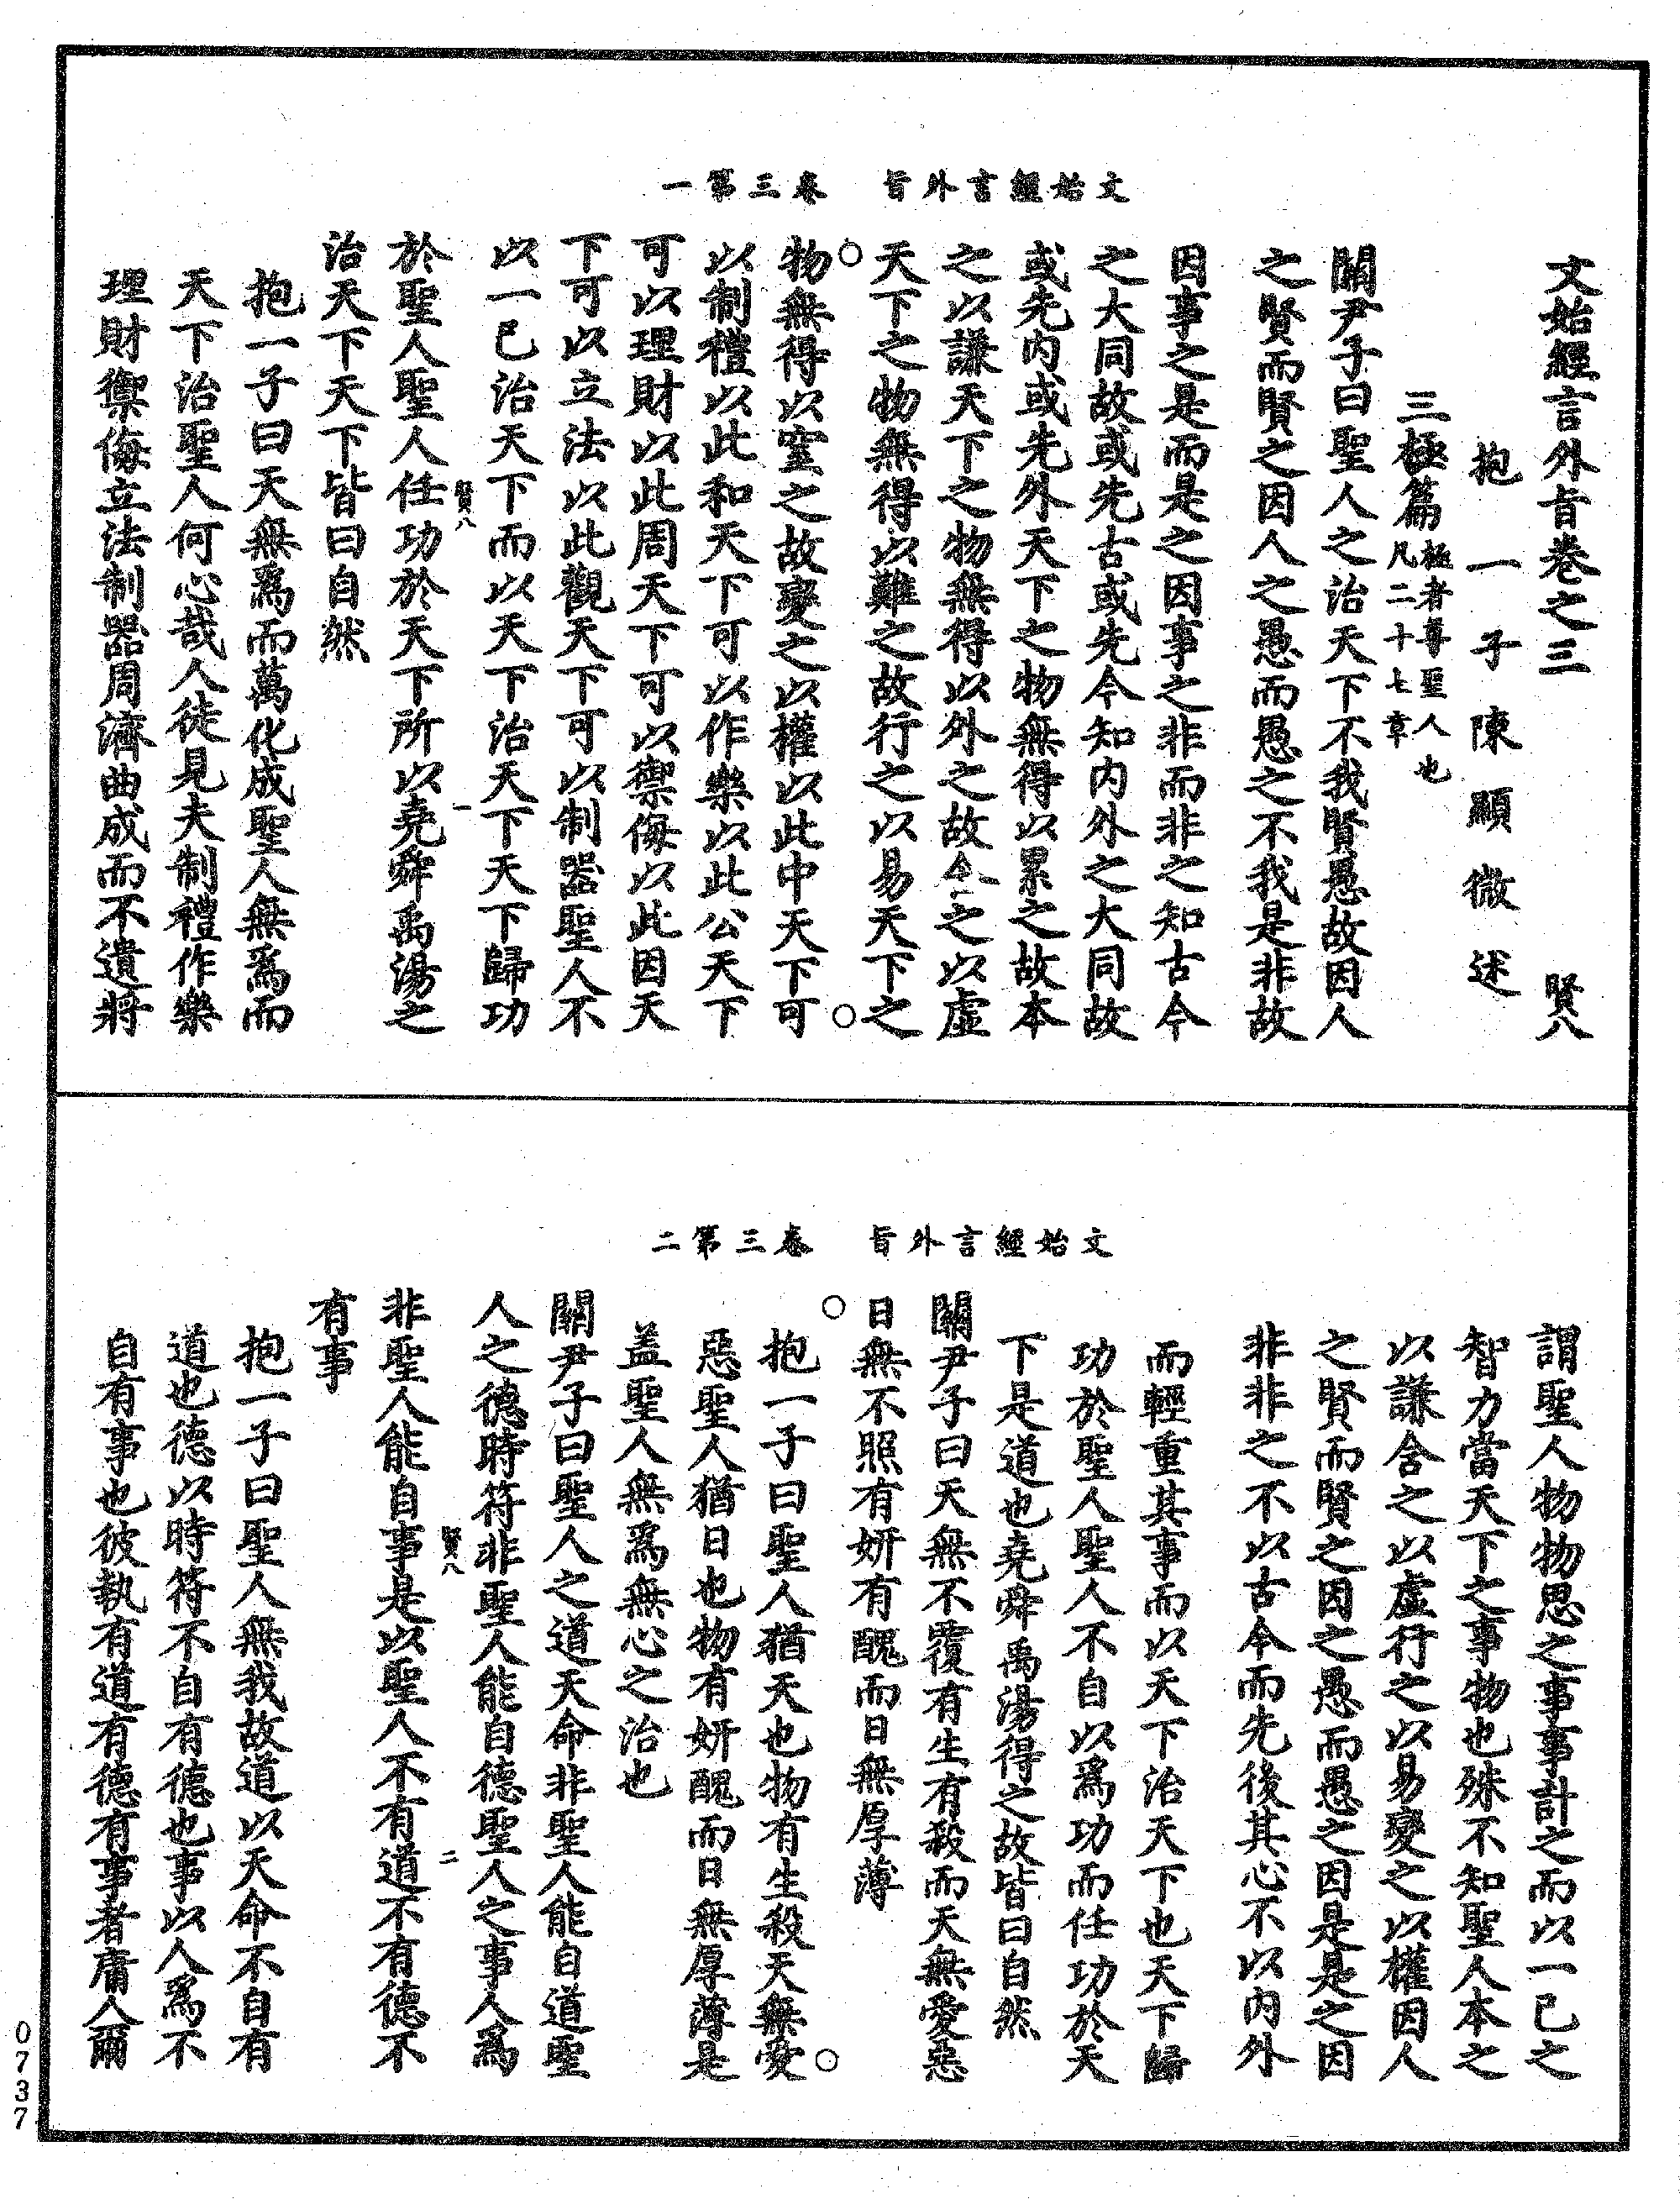 文始經言外旨　卷三第一
文始經言外旨卷之三　賢八
抱一子陳顯微述
三極篇極者尊聖人也凡二十七章
關尹子曰聖人之治天下不我賢愚故因人
之賢而賢之因人之愚而愚之不我是非故
因事之是而是之因事之非而非之知古今
之大同故或先古或先今知內外之大同故
或先內或先外天下之物無得以累之故本
之以謙天下之物無得以外之故含之以虛
天下之物無得以難之故行之以易天下之
物無得以窒之故變之以權以此中天下可
以制禮以此和天下可以作樂以此公天下
可以理財以此周天下可以禦侮以此因天
下可以立法以此觀天下可以制器聖人不
以一己治天下而以天下治天下天下歸功
賢八　一
於聖人聖人任功於天下所以堯舜禹湯之
治天下天下皆曰自然
抱一子曰天無爲而萬化成聖人無爲而
天下治聖人何心哉人徒見夫制禮作樂
理財禦侮立法制器周濟曲成而不遺將
文始經言外旨　卷三第二
謂聖人物物思之事事計之而以一己之
智力當天下之事物也殊不知聖人本之
以謙含之以虛行之以易變之以權因人
之賢而賢之因之愚而愚之因是是之因
非非之不以古今而先後其心不以內外
而輕重其事而以天下治天下也天下歸
功於聖人聖人不自以爲功而任功於天
下是道也堯舜禹湯得之故皆曰自然
關尹子曰天無不覆有生有殺而天無愛惡
日無不照有妍有醜而日無厚薄
抱一子曰聖人猶天也物有生殺天無愛
惡聖人猶日也物有妍醜而日無厚薄是
盖聖人無爲無心之治也
關尹子曰聖人之道天命非聖人能自道聖
人之德時符非聖人能自德聖人之事人爲
賢八　二
非聖人能自事是以聖人不有道不有德不
有事
抱一子曰聖人無我故道以天命不自有
道也德以時符不自有德也事以人爲不
自有事也彼執有道有德有事者庸人爾
0737